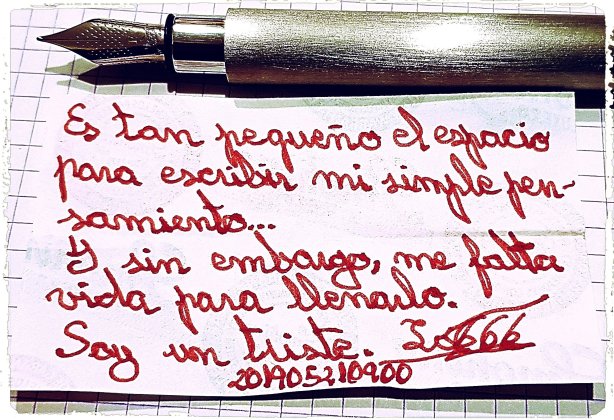 Es tan pequeño el espacio
para escribir mi simple pen-
samiento...
Y sin embargo, me falta
vida para llenarlo.
Soy un triste.
201905210900